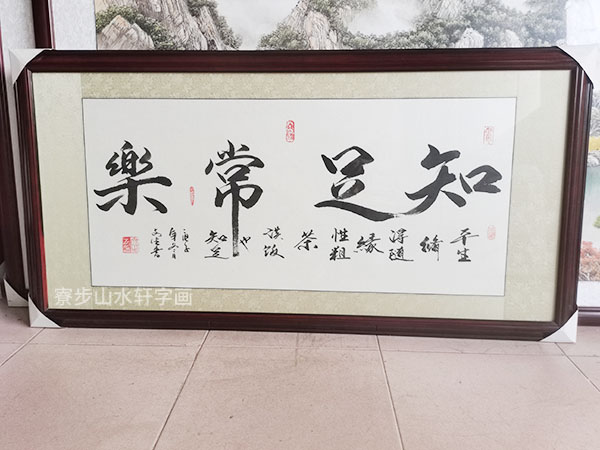 知足常樂
平生
修得隨
緣性粗
茶淡飯
也知足
庚子
年
書
寮步山水轩字画